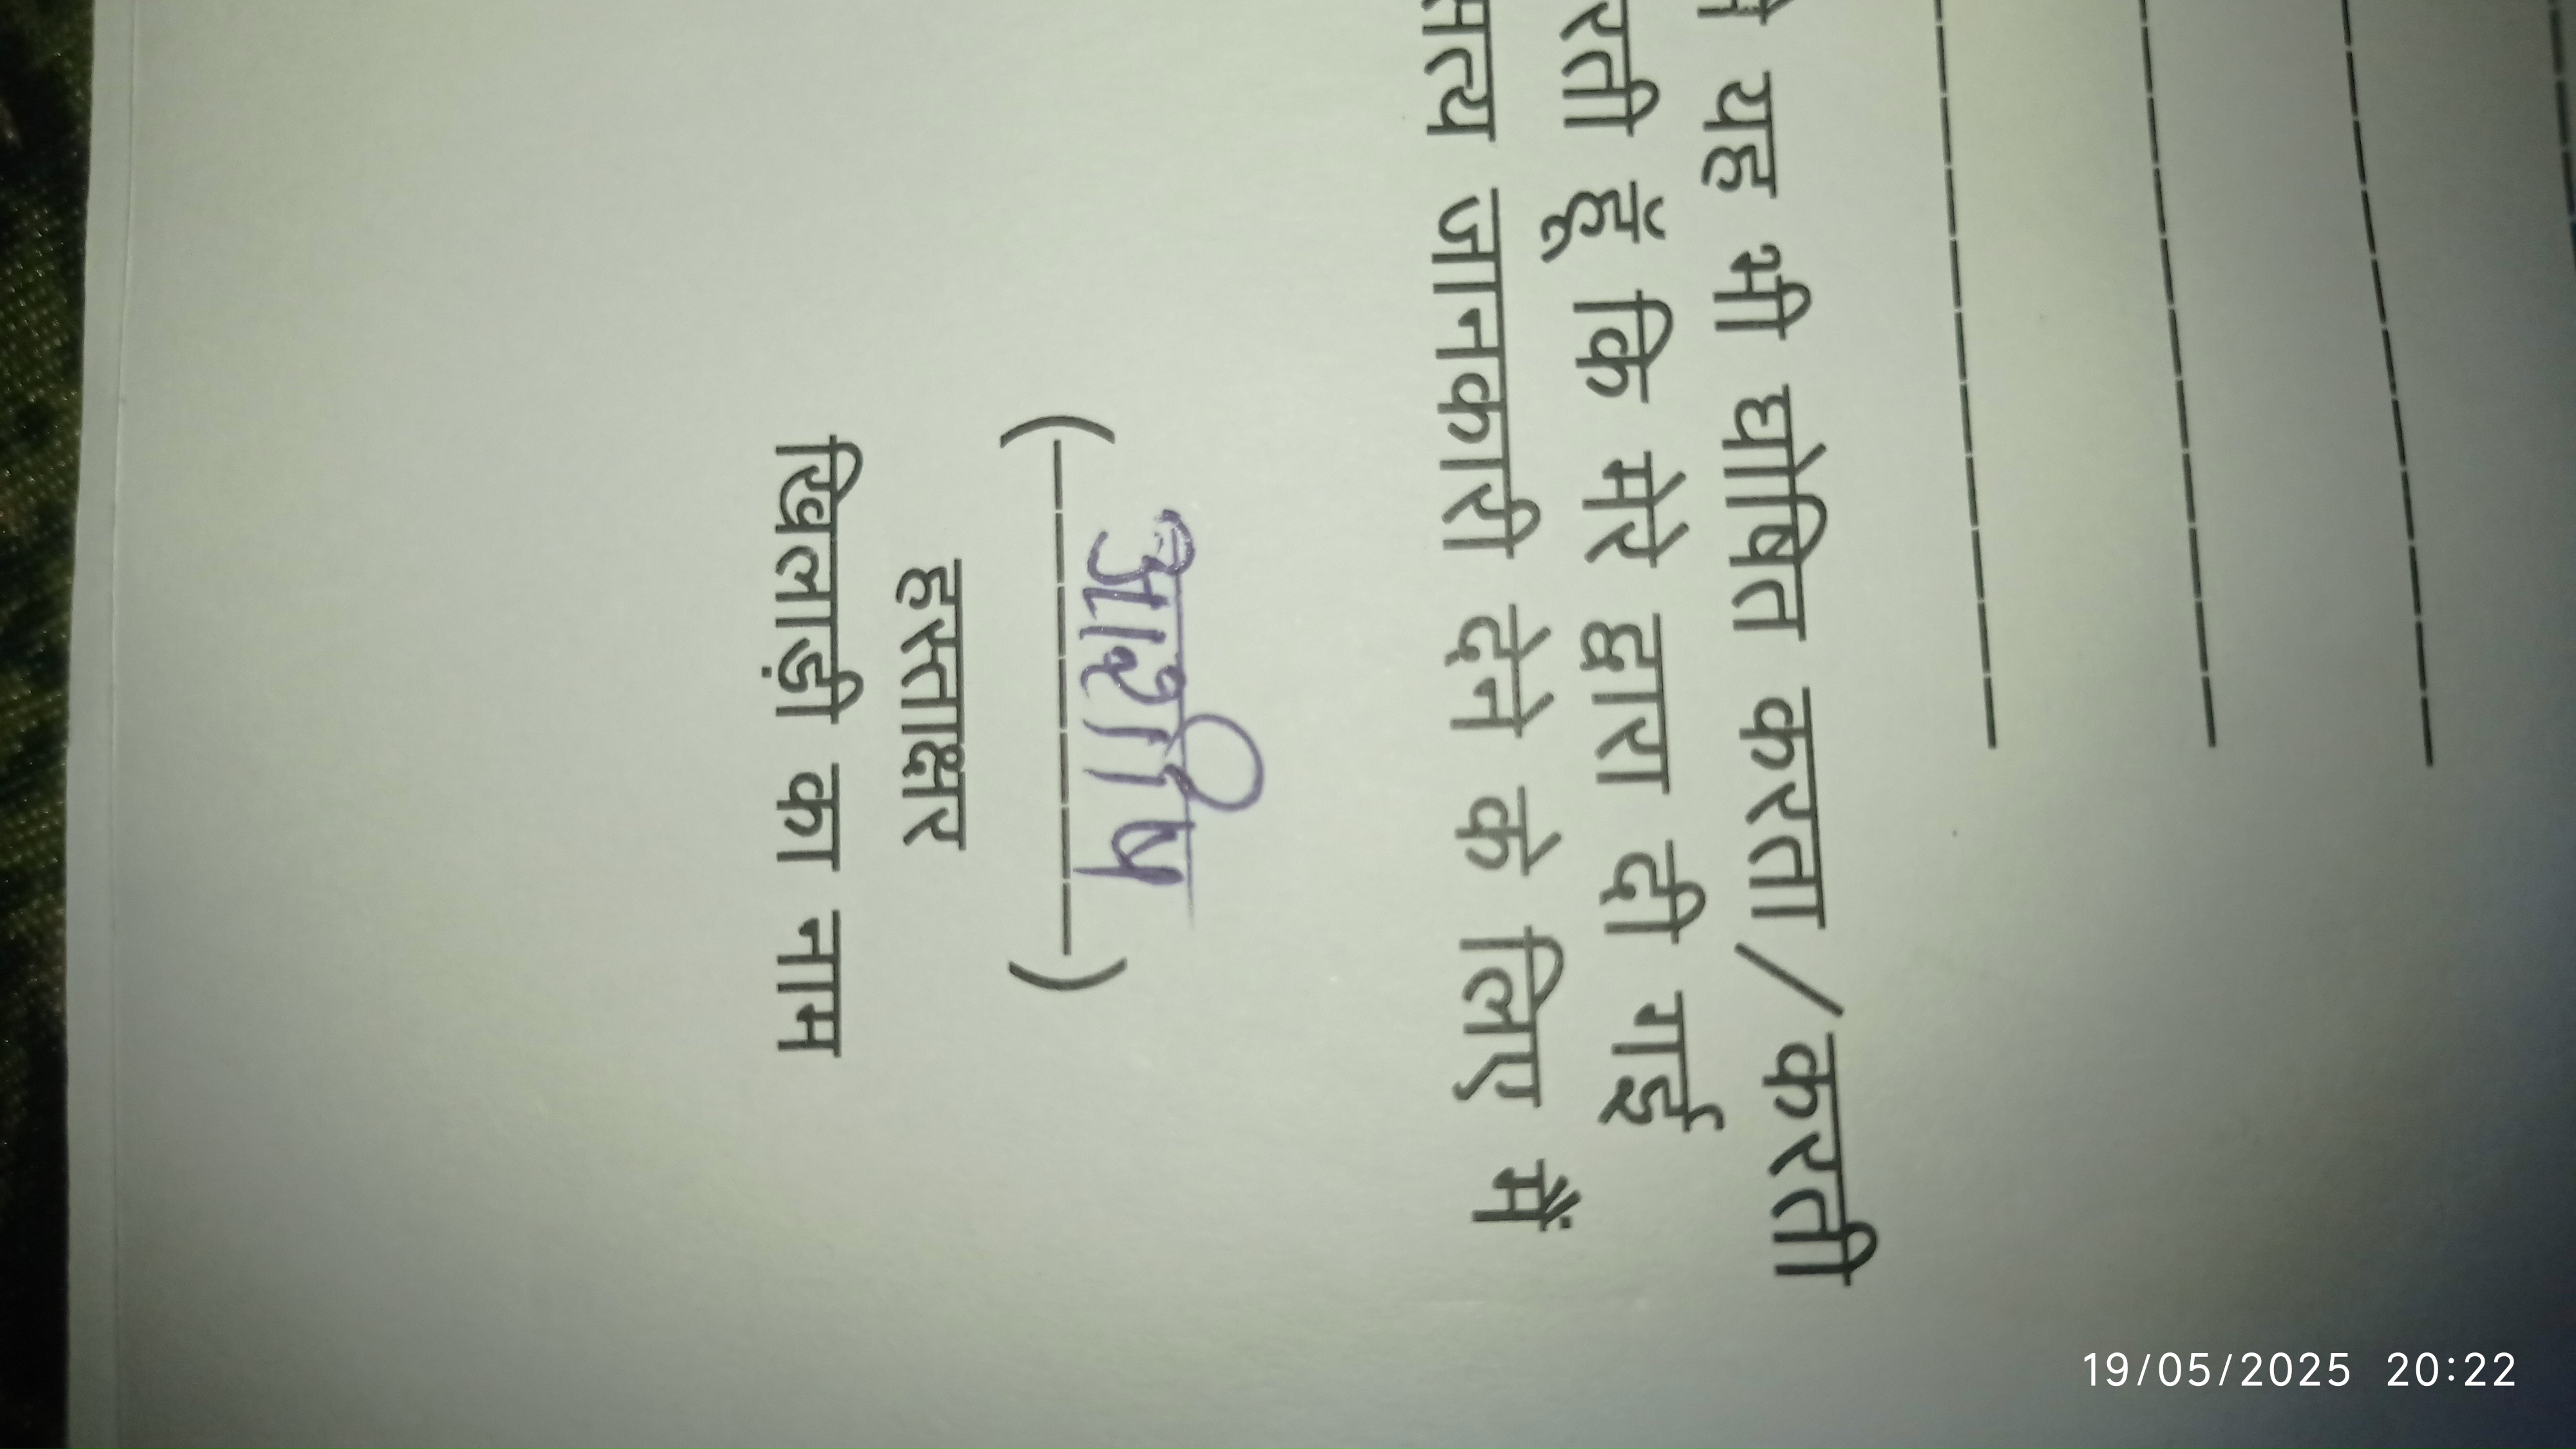 यह भी घोषित करता/करती
रती हूँ कि मेरे द्वारा दी गई
सत्य जानकारी देने के लिए मैं
(आशीष)
हस्ताक्षर
खिलाड़ी का नाम
19/05/2025 20:22